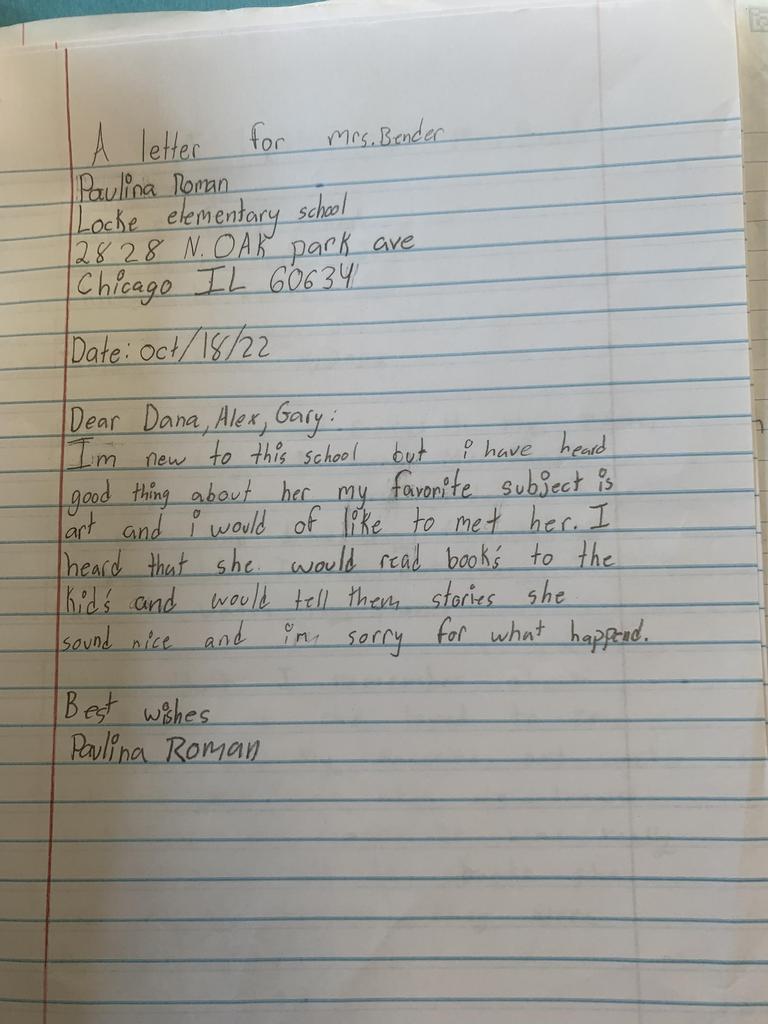 A letter for Mrs. Bender
Paulina Roman
Locke elementary school
2828 N. OAK park ave
Chicago IL 60634
Date: oct/18/22
Dear Dana, Alex, Gary:
I'm new to this school but i have heard
good thing about her my favorite subject is
art and i would of like to met her. I
heard that she would read book's to the
kid's and would tell them stories she
sound nice and i'm sorry for what happend.
Best wishes
Paulina Roman